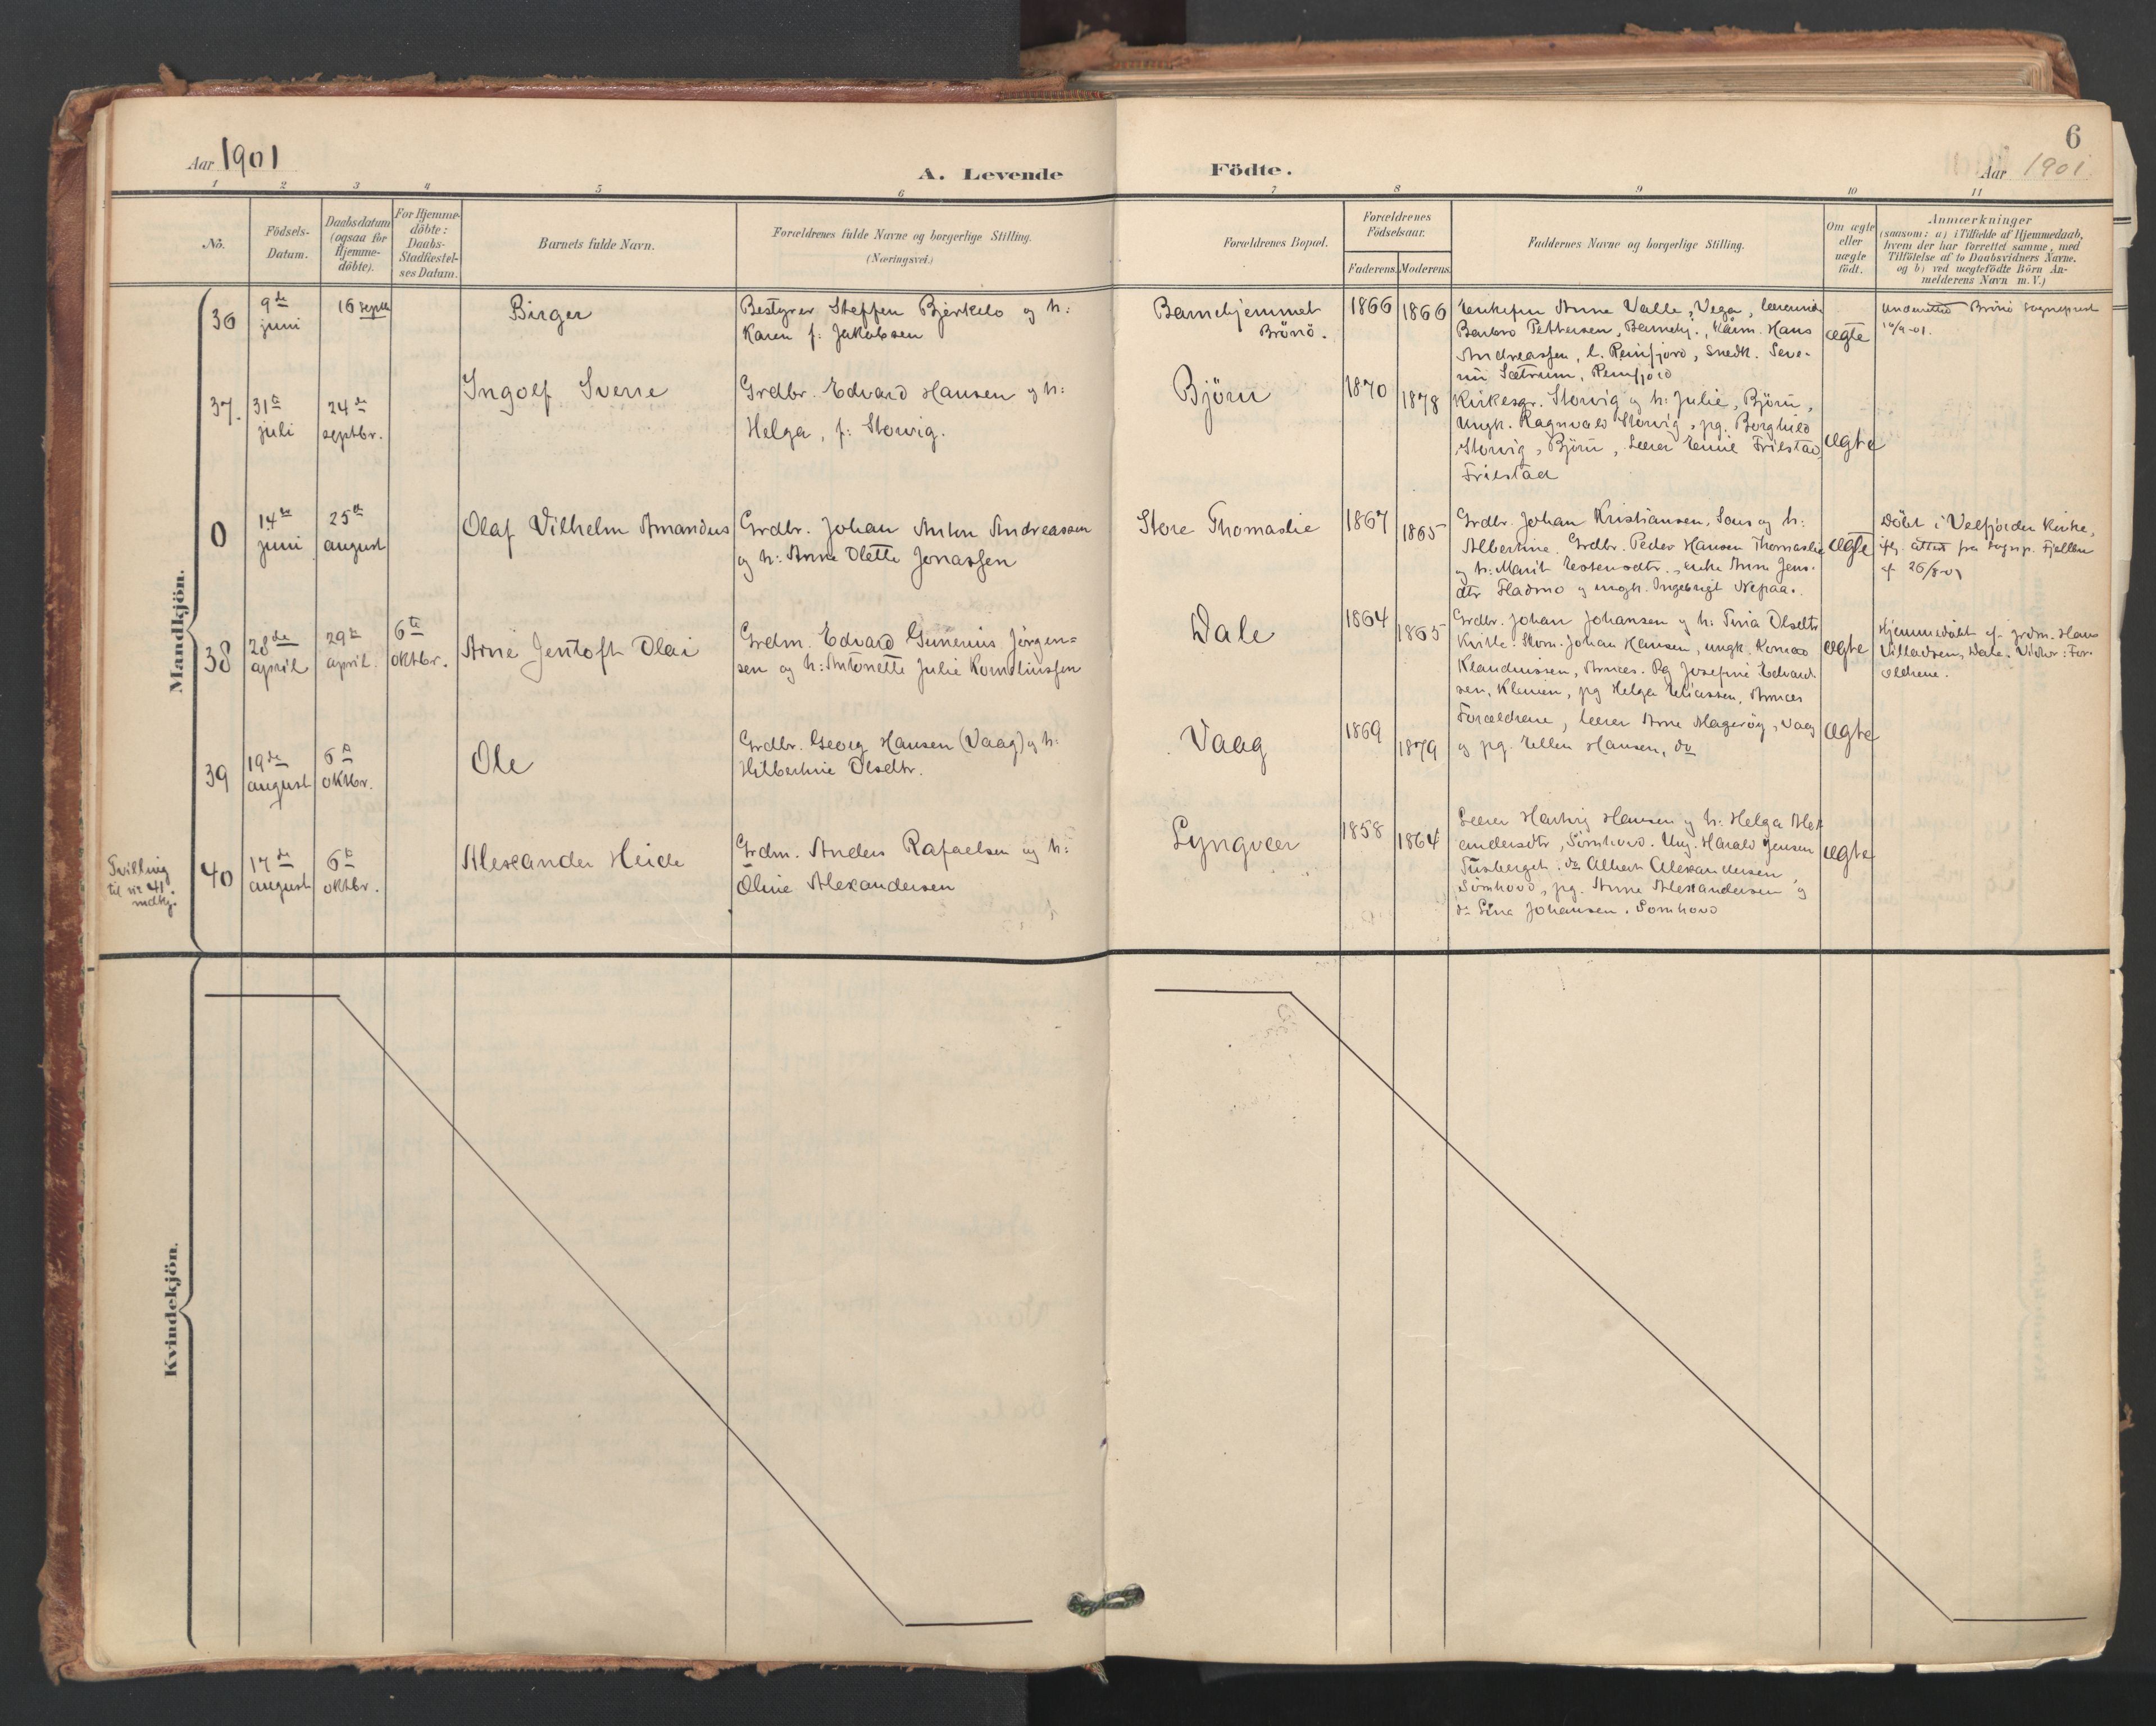 Aar 1901
A. Levende
Födte.
6
Aar 1901
1 2 3 4 5 6 7 8 9 10 11
No.
Födsels-
Datum.
Daabsdatum
(ogsaa for
Hjemme-
döbte).
For Hjemme-
döbte:
Daabs-
Stadfæstel-
ses Datum.
Barnets fulde Navn.
Forældrenes fulde Navne og borgerlige Stilling.
(Næringsvei.)
Forældrenes Bopæl.
Forældrenes
Födselsaar.
Faderens.
Moderens.
Faddernes Navne og borgerlige Stilling.
Om ægte
eller
uægte
födt.
Anmærkninger
(saasom: a) i Tilfælde af Hjemmedaab,
hvem der har forrettet samme, med
Tilföielse af to Daabsvidners Navne.
og b) ved uægtefödte Börn An-
melderens Navn m. V.)
Mandkjön.
36
9de
juni
16 septb
Birger
Bestyrer Steffen Bjerkelo og h:
Karen f: Jakobsen
Barnehjemmet
Brönö.
1866
1866
Enkefru Anne Valle, Vega,
Barbro Pettersen, Barnehj., Hans
Andreassen, l. Reinfjord, snedk. Seve-
rin Sætrum, Reinfjord
ægte
Brönö Sogneprest
37.
31te
juli
24de
septbr.
Ingolf Sverre
Grdbr. Edvard Hansen og h:
Helga, f: Storvig.
Björn
1870
1878
Kirkesgr. Storvig og h: Julie, Björn,
Ungk. Ragnvald Storvig, pg. Borghild
Storvig, Björn, Lærer Emil Frilstad,
Frilstad
ægte
0
14de
juni
25de
august
Olaf Vilhelm Amandus
Grdbr. Johan Anton Andreassen
og h: Anne Olette Jonassen
Store Thomaslie
1867
1865
Grdbr. Johan Kristiansen, Saus og h:
Albertine. Grdbr. Peder Hansen Thomaslie
og h: Marit Estensdtr., enke Anne Jens-
dtr Fladmo og ungk. Ingebrigt Nepaa.
ægte
Döbt i Velfjorden Kirke,
iflg. attest fra sognp. Fjellen
af 26/8-01
38
28de
april
29de
april.
6te
oktbr.
Arne Jentoft Olai
Grdm. Edvard Gunerius Jörgen-
sen og h: Antonette Julie Korneliussen
Dale
1864
1865
Grdbr. Johan Johansen og h: Tina Olsdtr
Johan Hansen, ungk. Konrad
Klaudiussen, Arnæs. Pg Josefine Edvard-
sen, pg Helga Eliassen, Arnæs
ægte
Hjemmedöbt af grdm. Hans
Villadsen, Dale. Vidner: For-
ældrene.
39
19de
august
6te
oktbr.
Ole
Grdbr. Georg Hansen (Vaag) og h:
Hilbertine Olsdtr.
Vaag
1869
1879
Forældrene, lærer Arne Mageröy, Vaag
og pg. Ellen Hansen, do
ægte
Tvilling
til nr 41
mdkj.
40
17de
august
6te
oktbr.
Alexander Heide
Grdm. Anders Rafaelsen og h:
Oline Alexandersen
Lyngvær
1858
1864
Lærer Hartvig Hansen og h: Helga Alex-
andersdtr, Sömhovd. Ung. Harald Jensen
Tusberget. do Albert Alexandersen,
Sömhovd, pg. Anne Alexandersen og
do Lina Johansen. Somhovd
ægte
Kvindekjön.